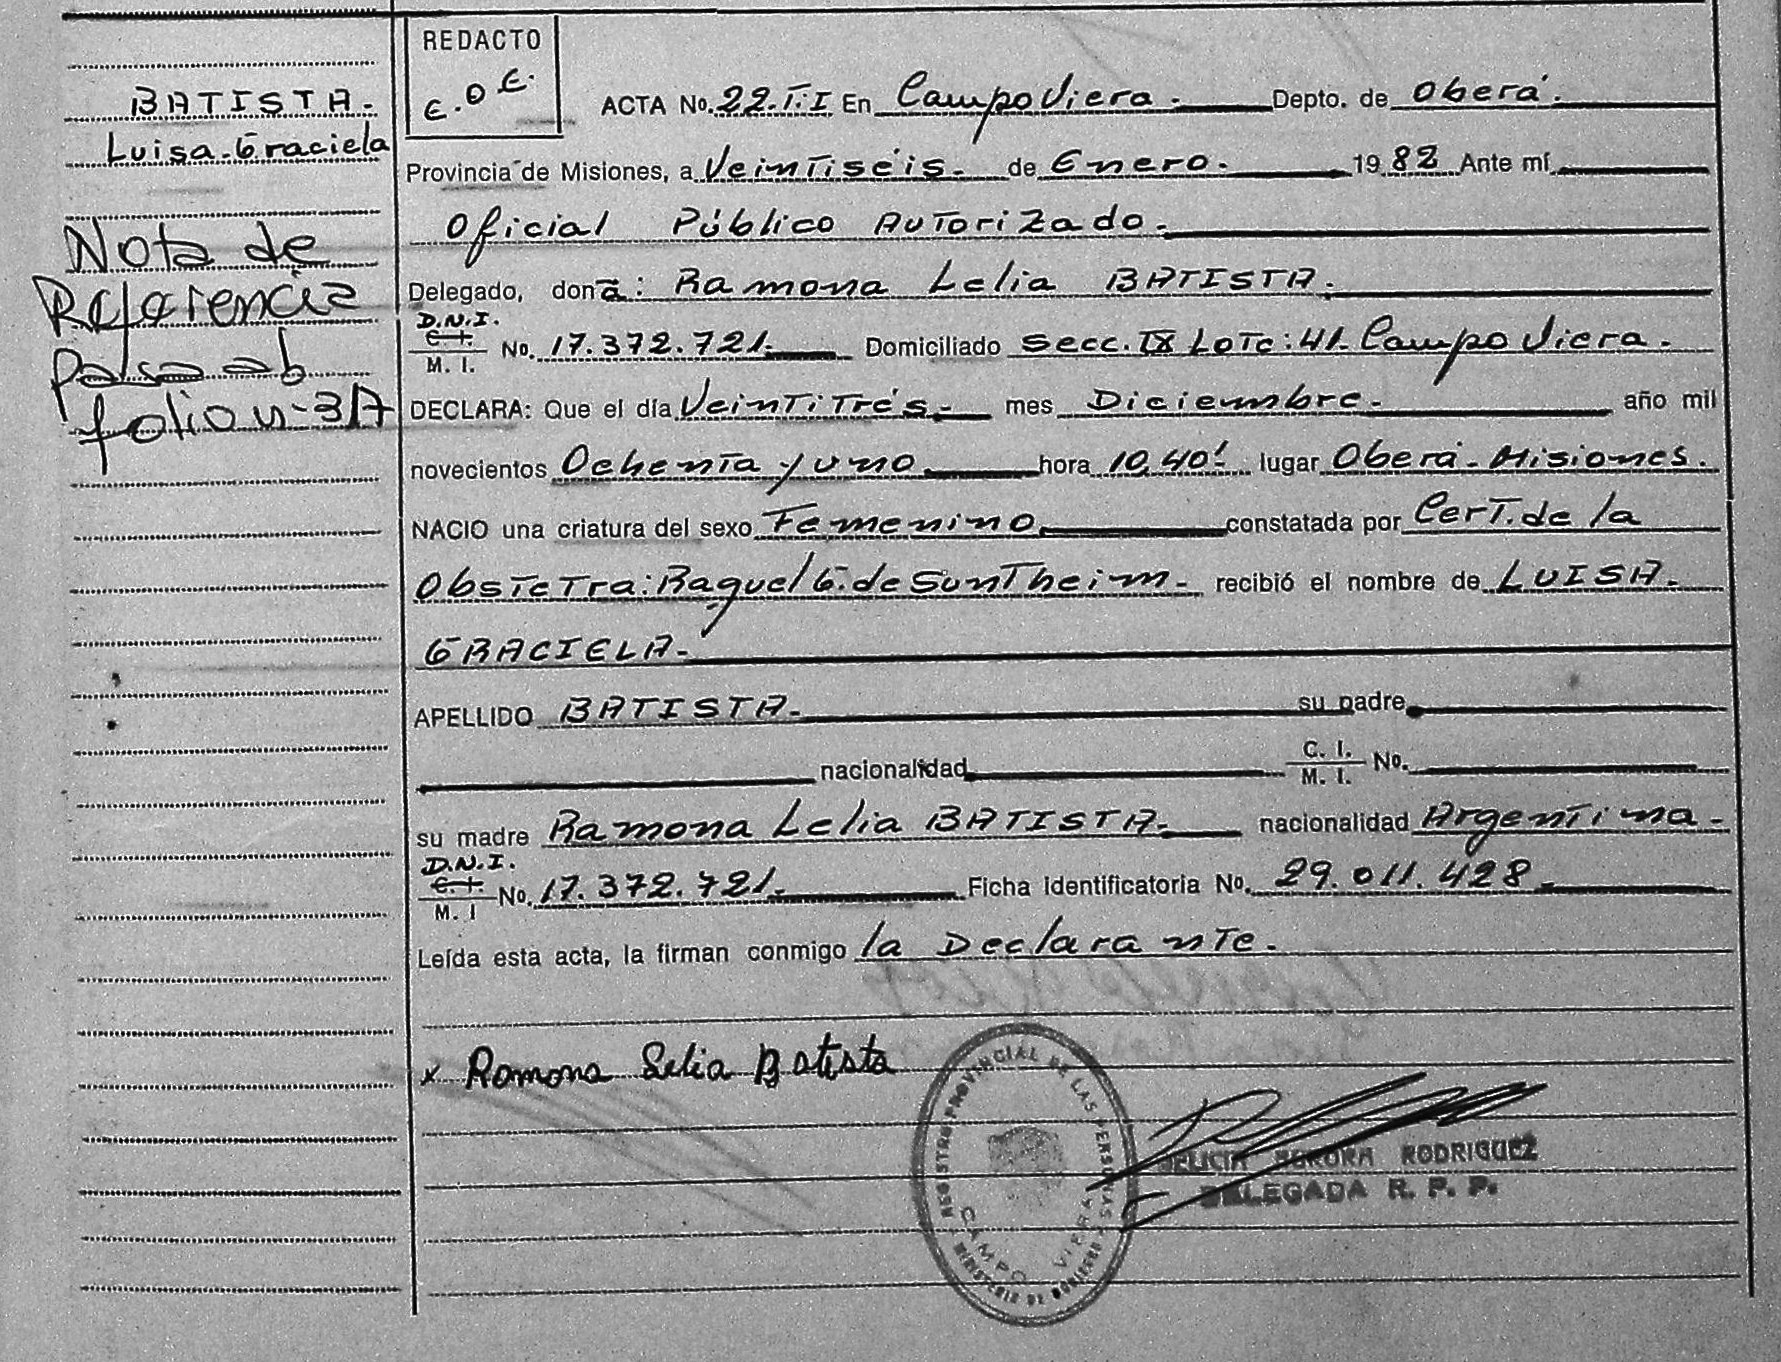 BATISTA.-
Luisa Graciela
Nota de
Referencia
Pasa ab
folio n-3A
REDACTO
E.O.E.
ACTA No. 22.T.I En Campo Viera.- Depto. de Oberá.
Provincia de Misiones, a Veintiséis.- de Enero.- 1982 Ante mí
Oficial Público Autorizado.-
Delegado, doña: Ramona Lelia BATISTA.-
D.N.I.
C. I.
M. I.
No. 17.372.721.- Domiciliado Secc. IX Lote: 41. Campo Viera.-
DECLARA: Que el día Veintitrés.- mes Diciembre.- año mil
novecientos Ochenta y uno.- hora 10,40'.- lugar Oberá.- Misiones.
NACIO una criatura del sexo Femenino.- constatada por Cert. de la
Obstetra: Raquel G. de Suntheim.- recibió el nombre de LUISA.-
GRACIELA.-
APELLIDO BATISTA.- su padre
nacionalidad C. I. M. I. No.
su madre Ramona Lelia BATISTA.- nacionalidad Argentina.-
D.N.I.
C. I.
M. I
No. 17.372.721.- Ficha Identificatoria No. 29.011.428.-
Leída esta acta, la firman conmigo la Declarante.-
x Ramona Lelia Batista
REGISTRO PROVINCIAL DE LAS PERSONAS
MINISTERIO DE GOBIERNO
CAMPO VIERA
AURORA RODRIGUEZ
DELEGADA R. P. P.